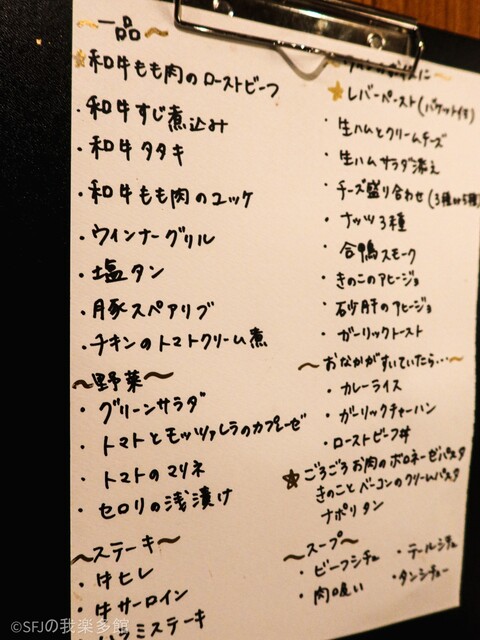 〜一品〜
★和牛もも肉のローストビーフ
・和牛すじ煮込み
・和牛タタキ
・和牛もも肉のユッケ
・ウインナーグリル
・塩タン
・豚スペアリブ
・チキンのトマトクリーム煮
〜野菜〜
・グリーンサラダ
・トマトとモッツァレラのカプレーゼ
・トマトのマリネ
・セロリの浅漬け
〜ステーキ〜
・牛ヒレ
・牛サーロイン
ラミステーキ
★レバーペースト(バケット付き)
・生ハムとクリームチーズ
・生ハムサラダ添え
・チーズ盛り合わせ(3種or5種)
・ナッツ3種
・合鴨スモーク
・きのこのアヒージョ
・砂肝のアヒージョ
・ガーリックトースト
〜おなかがすいていたら…〜
・カレーライス
・ガーリックチャーハン
・ローストビーフ丼
★ごろごろお肉のボロネーゼパスタ
きのことベーコンのクリームパスタ
ナポリタン
〜スープ〜
・ビーフシチュー
・テールシチュー
・肉吸い
・タンシチュー
©SFJの我楽多館